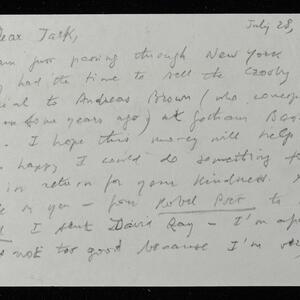 July 28,
Dear Tark,
am just passing through New York
had the time to sell the Crosby
to Andreas Brown (who
some years ago) at Gotham Boo
. I hope this money will help
happy I could do something
in return for your kindness.
on you – from Rebel Poet to
I sent David Ray – I'm
not too good because I'm